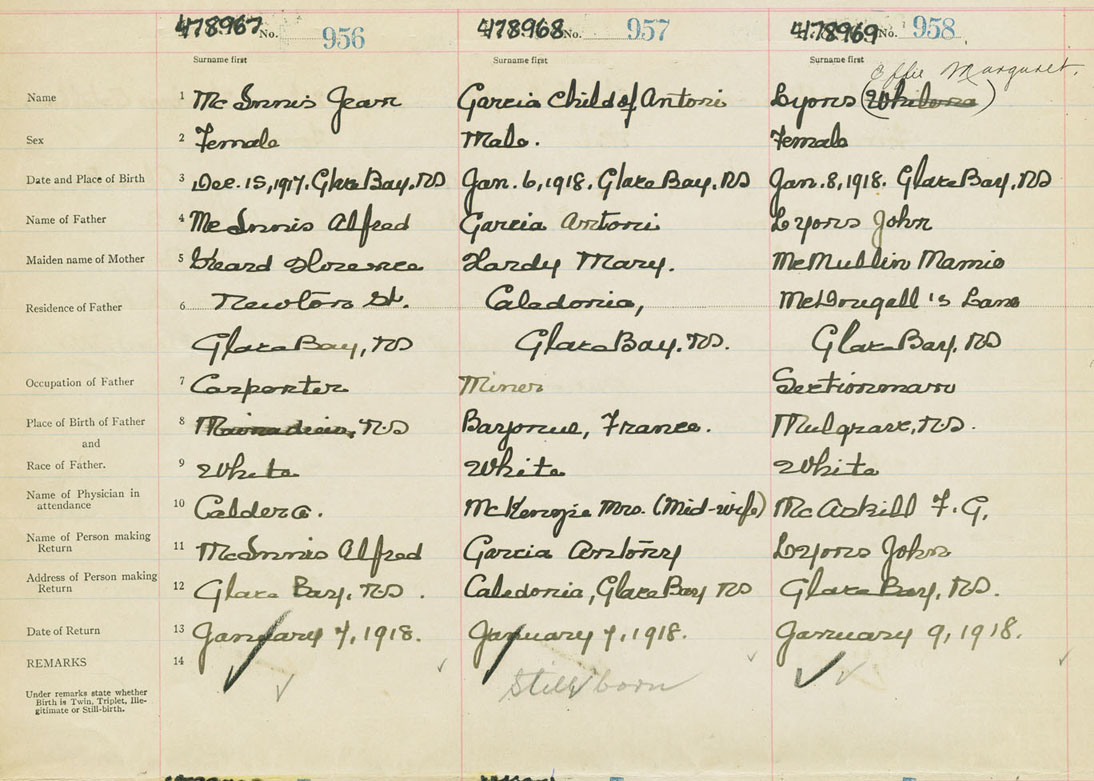 478967 No. 956 478968 No. 957 478969 No. 958
Surname first Surname first Surname first
Effie Margaret.
Name 1 McInnis Jean Garcia Child of Antoni Lyons
Sex 2 Female Male. Female
Date and Place of Birth 3 Dec. 15, 1917. Glace Bay, NS Jan. 6, 1918. Glace Bay, NS Jan. 8, 1918. Glace Bay, NS
Name of Father 4 McInnis Alfred Garcia Antoni Lyons John
Maiden name of Mother 5 Florence Hardy Mary. McMullin Mamie
Residence of Father 6 Newton St. Caledonia, McDougall's Lane
Glace Bay, NS Glace Bay, NS. Glace Bay, NS
Occupation of Father 7 Carpenter Miner Sectionman
Place of Birth of Father 8 NS Bayonne, France. Mulgrave, NS.
and
Race of Father. 9 White White White
Name of Physician in
attendance 10 Calder McKenzie Mrs. (Mid-wife) McAskill F. G.
Name of Person making
Return 11 McInnis Alfred Garcia Antony Lyons John
Address of Person making
Return 12 Glace Bay, NS. Caledonia, Glace Bay NS Glace Bay, NS.
Date of Return 13 January 7, 1918. January 7, 1918. January 9, 1918.
REMARKS 14
Under remarks state whether
Birth is Twin, Triplet, Ille-
gitimate or Still-birth.
Still born